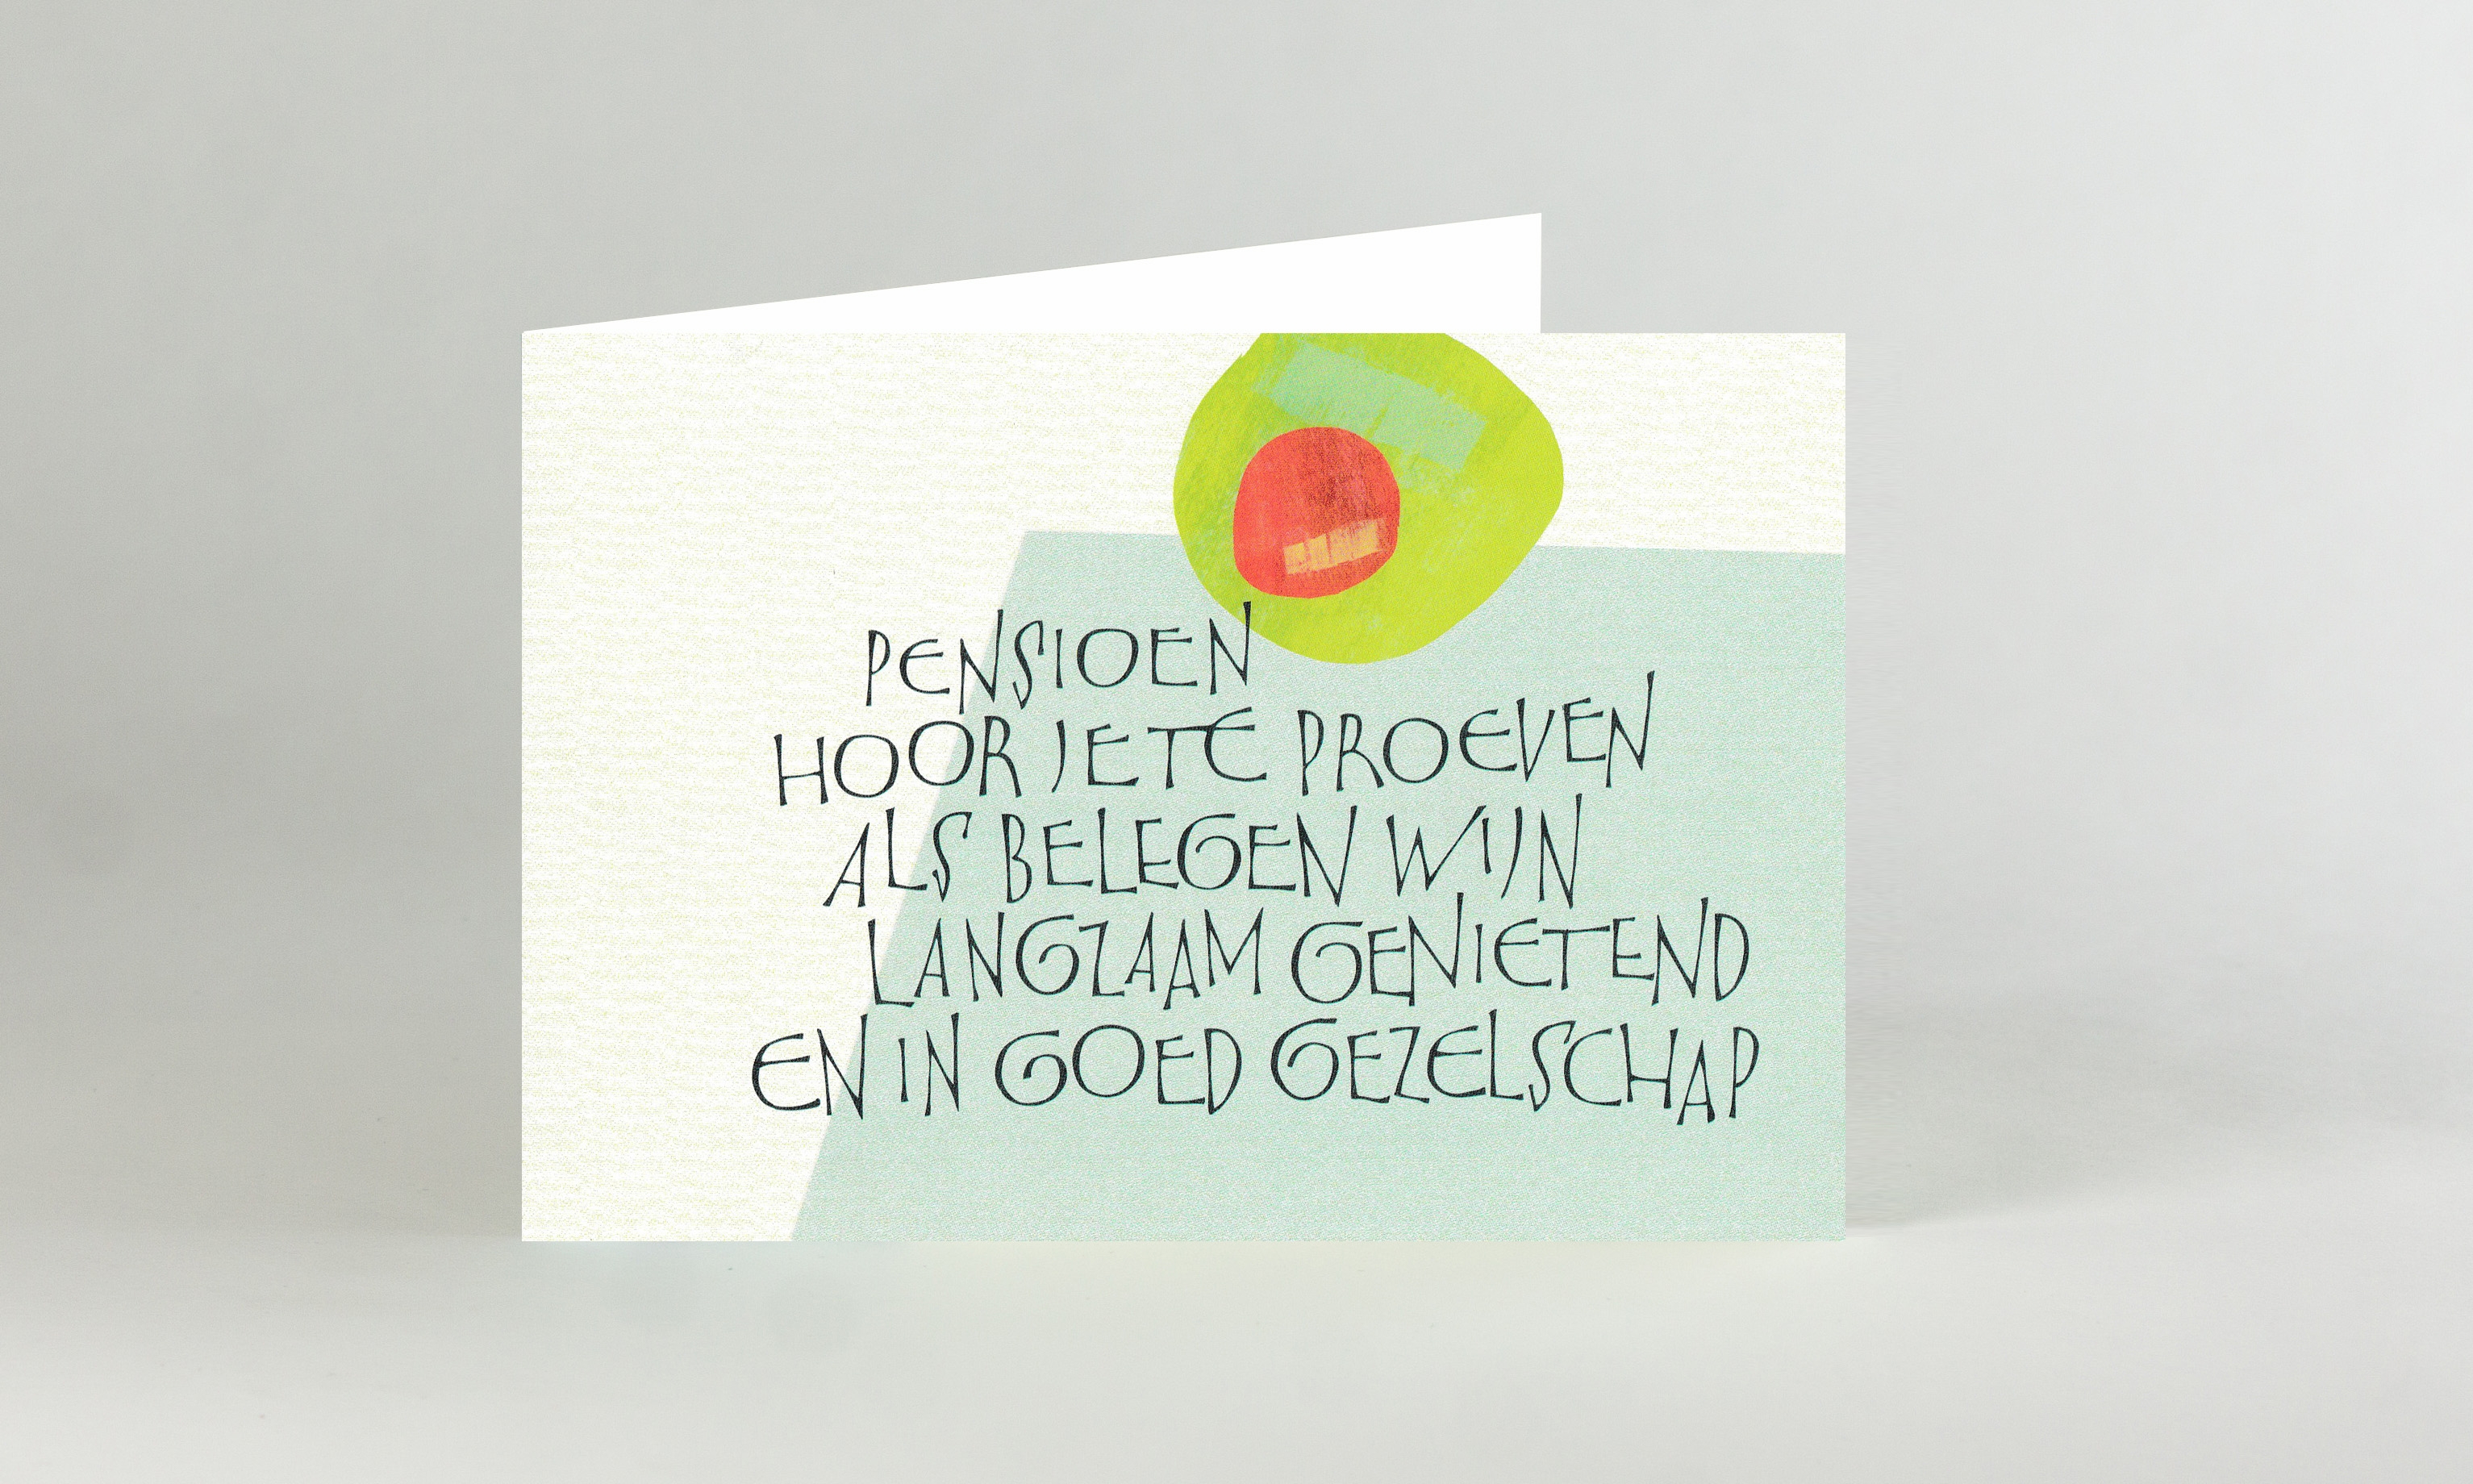 PENSIOEN
HOOR JE TE PROEVEN
ALS BELEGEN WIJN
LANGZAAM GENIETEND
EN IN GOED GEZELSCHAP